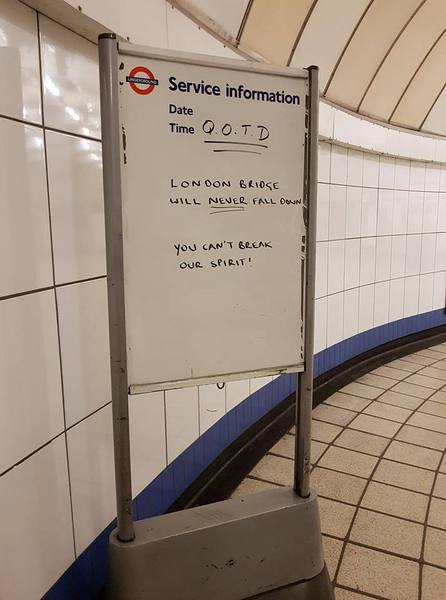 UNDERGROUND
Service information
Date
Time Q.O.T.D
LONDON BRIDGE
WILL NEVER FALL DOWN
YOU CAN'T BREAK
OUR SPIRIT!